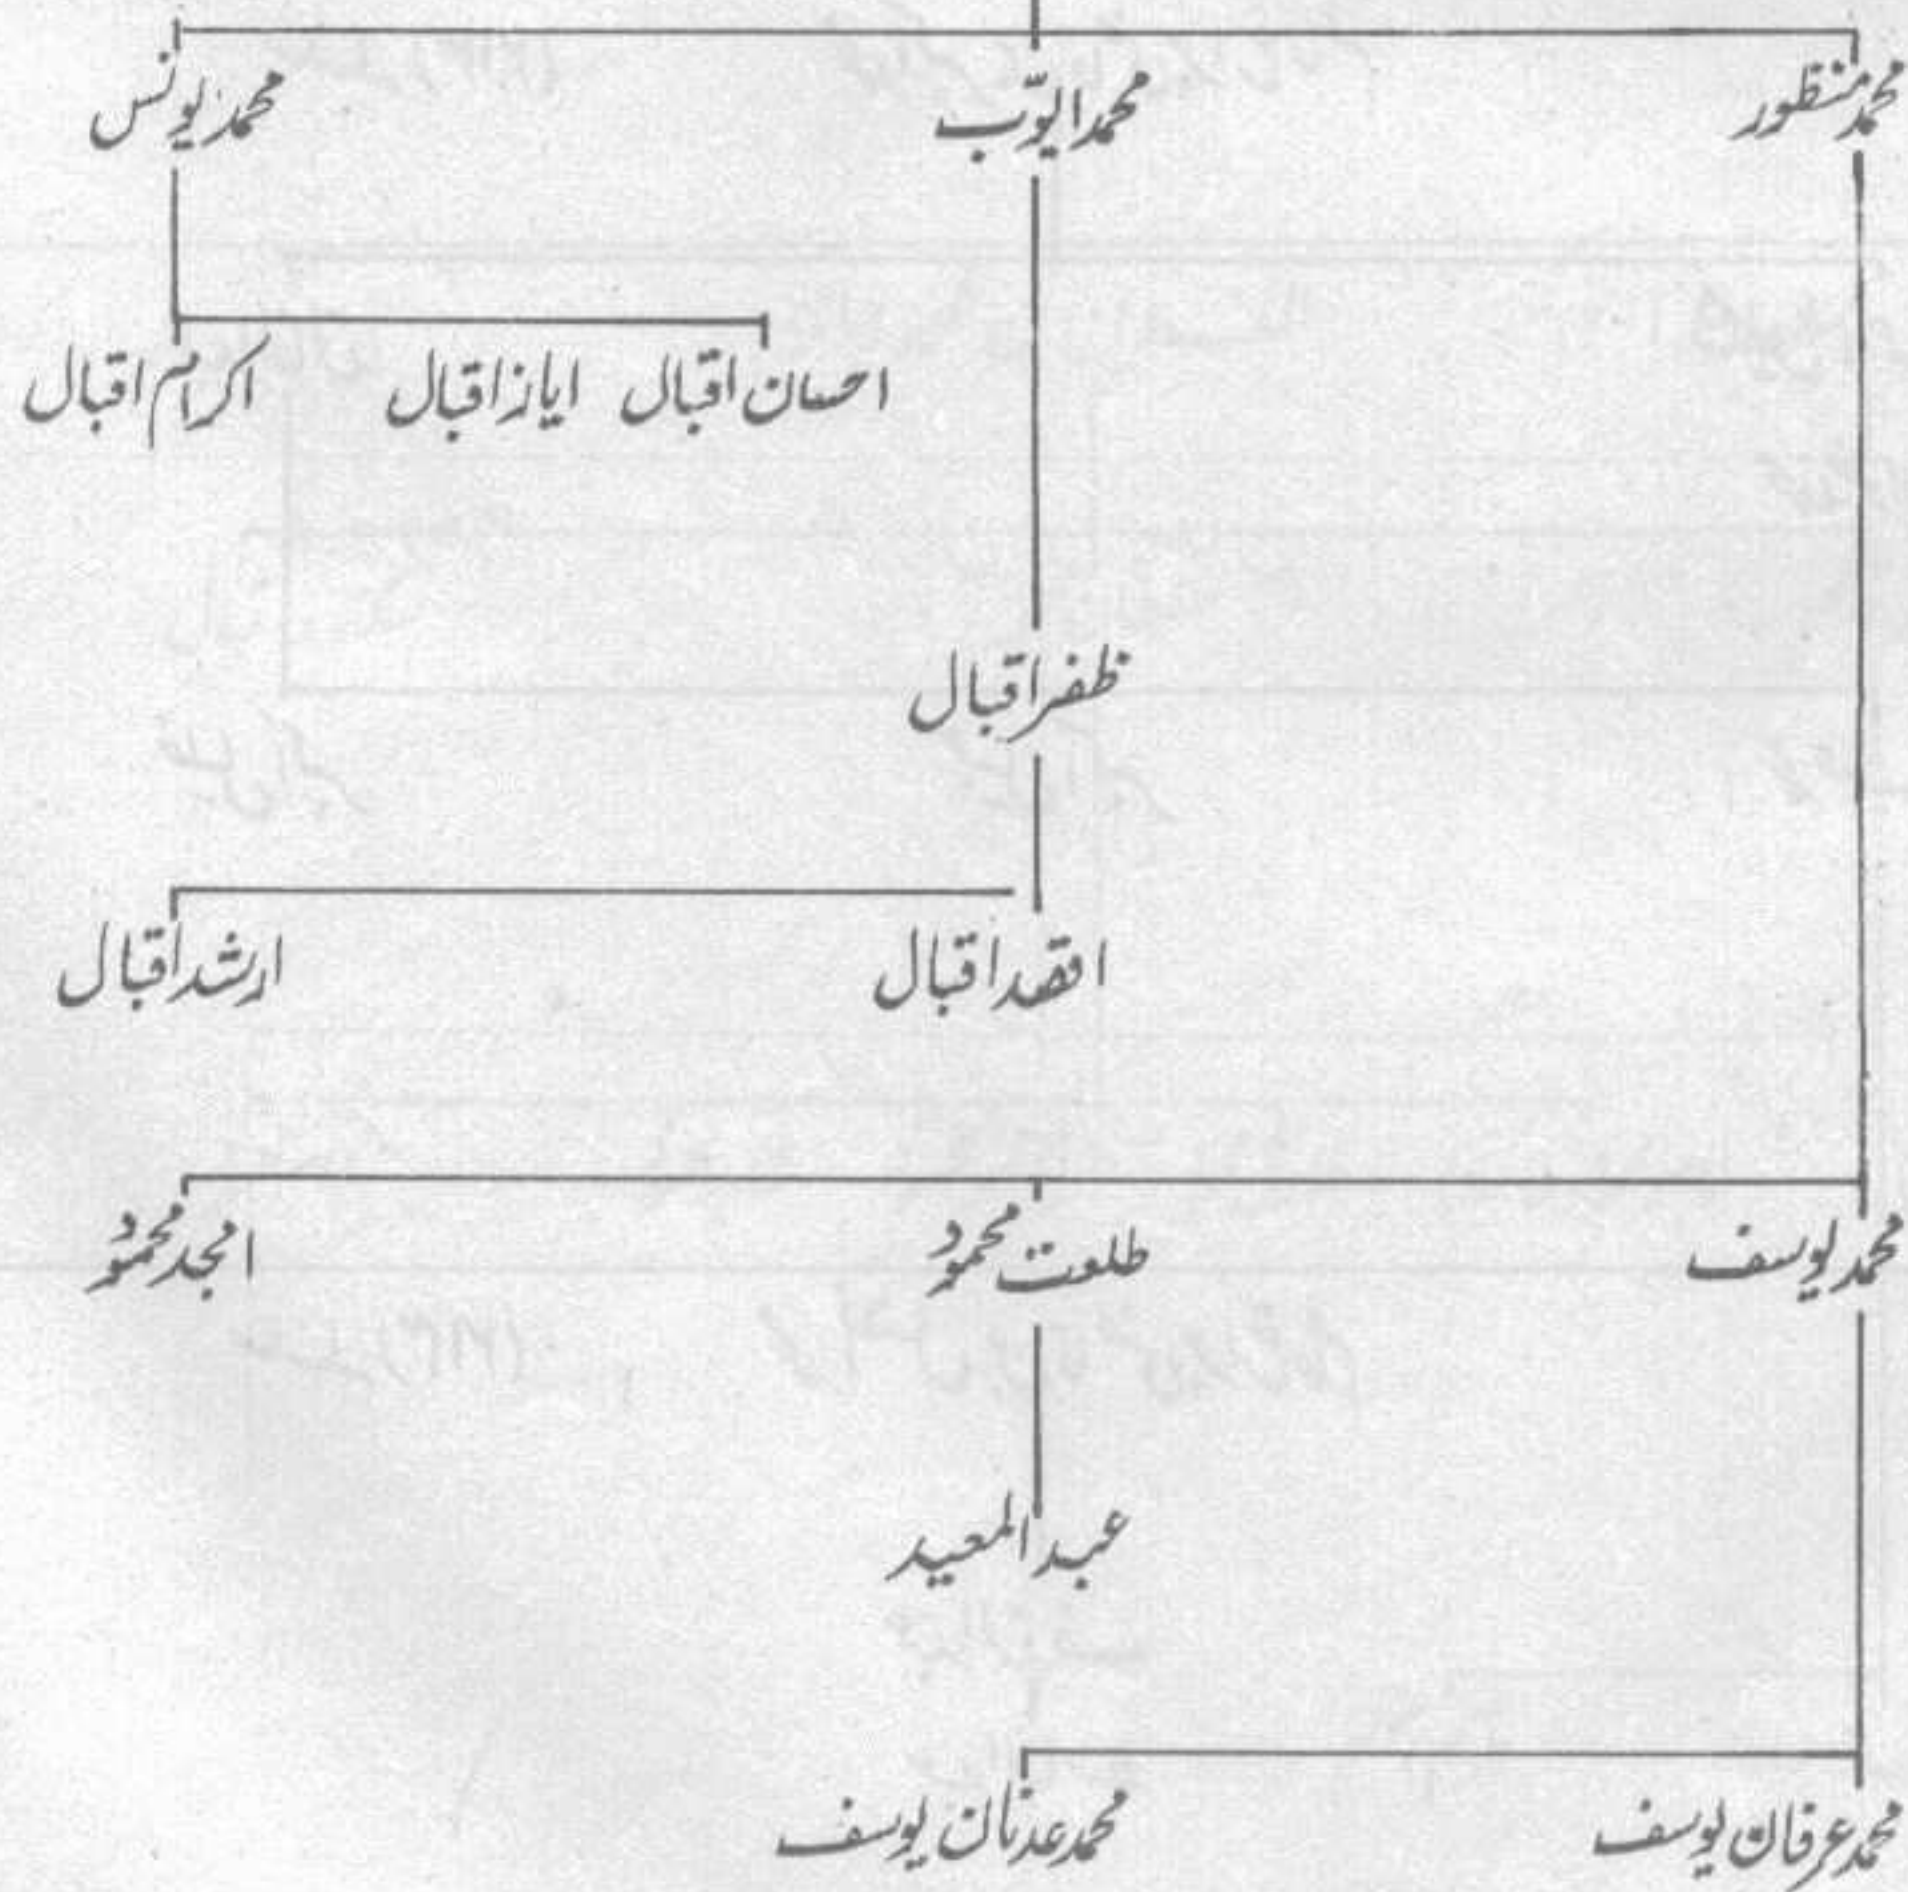 محمد منظور محمد ایوّب محمد یونس
احسان اقبال ایاز اقبال اکرام اقبال
ظفر اقبال
اقصد اقبال ارشد اقبال
محمد یوسف طلعت محمود امجد محمود
عبد المعید
محمد عرفان یوسف محمد عدنان یوسف